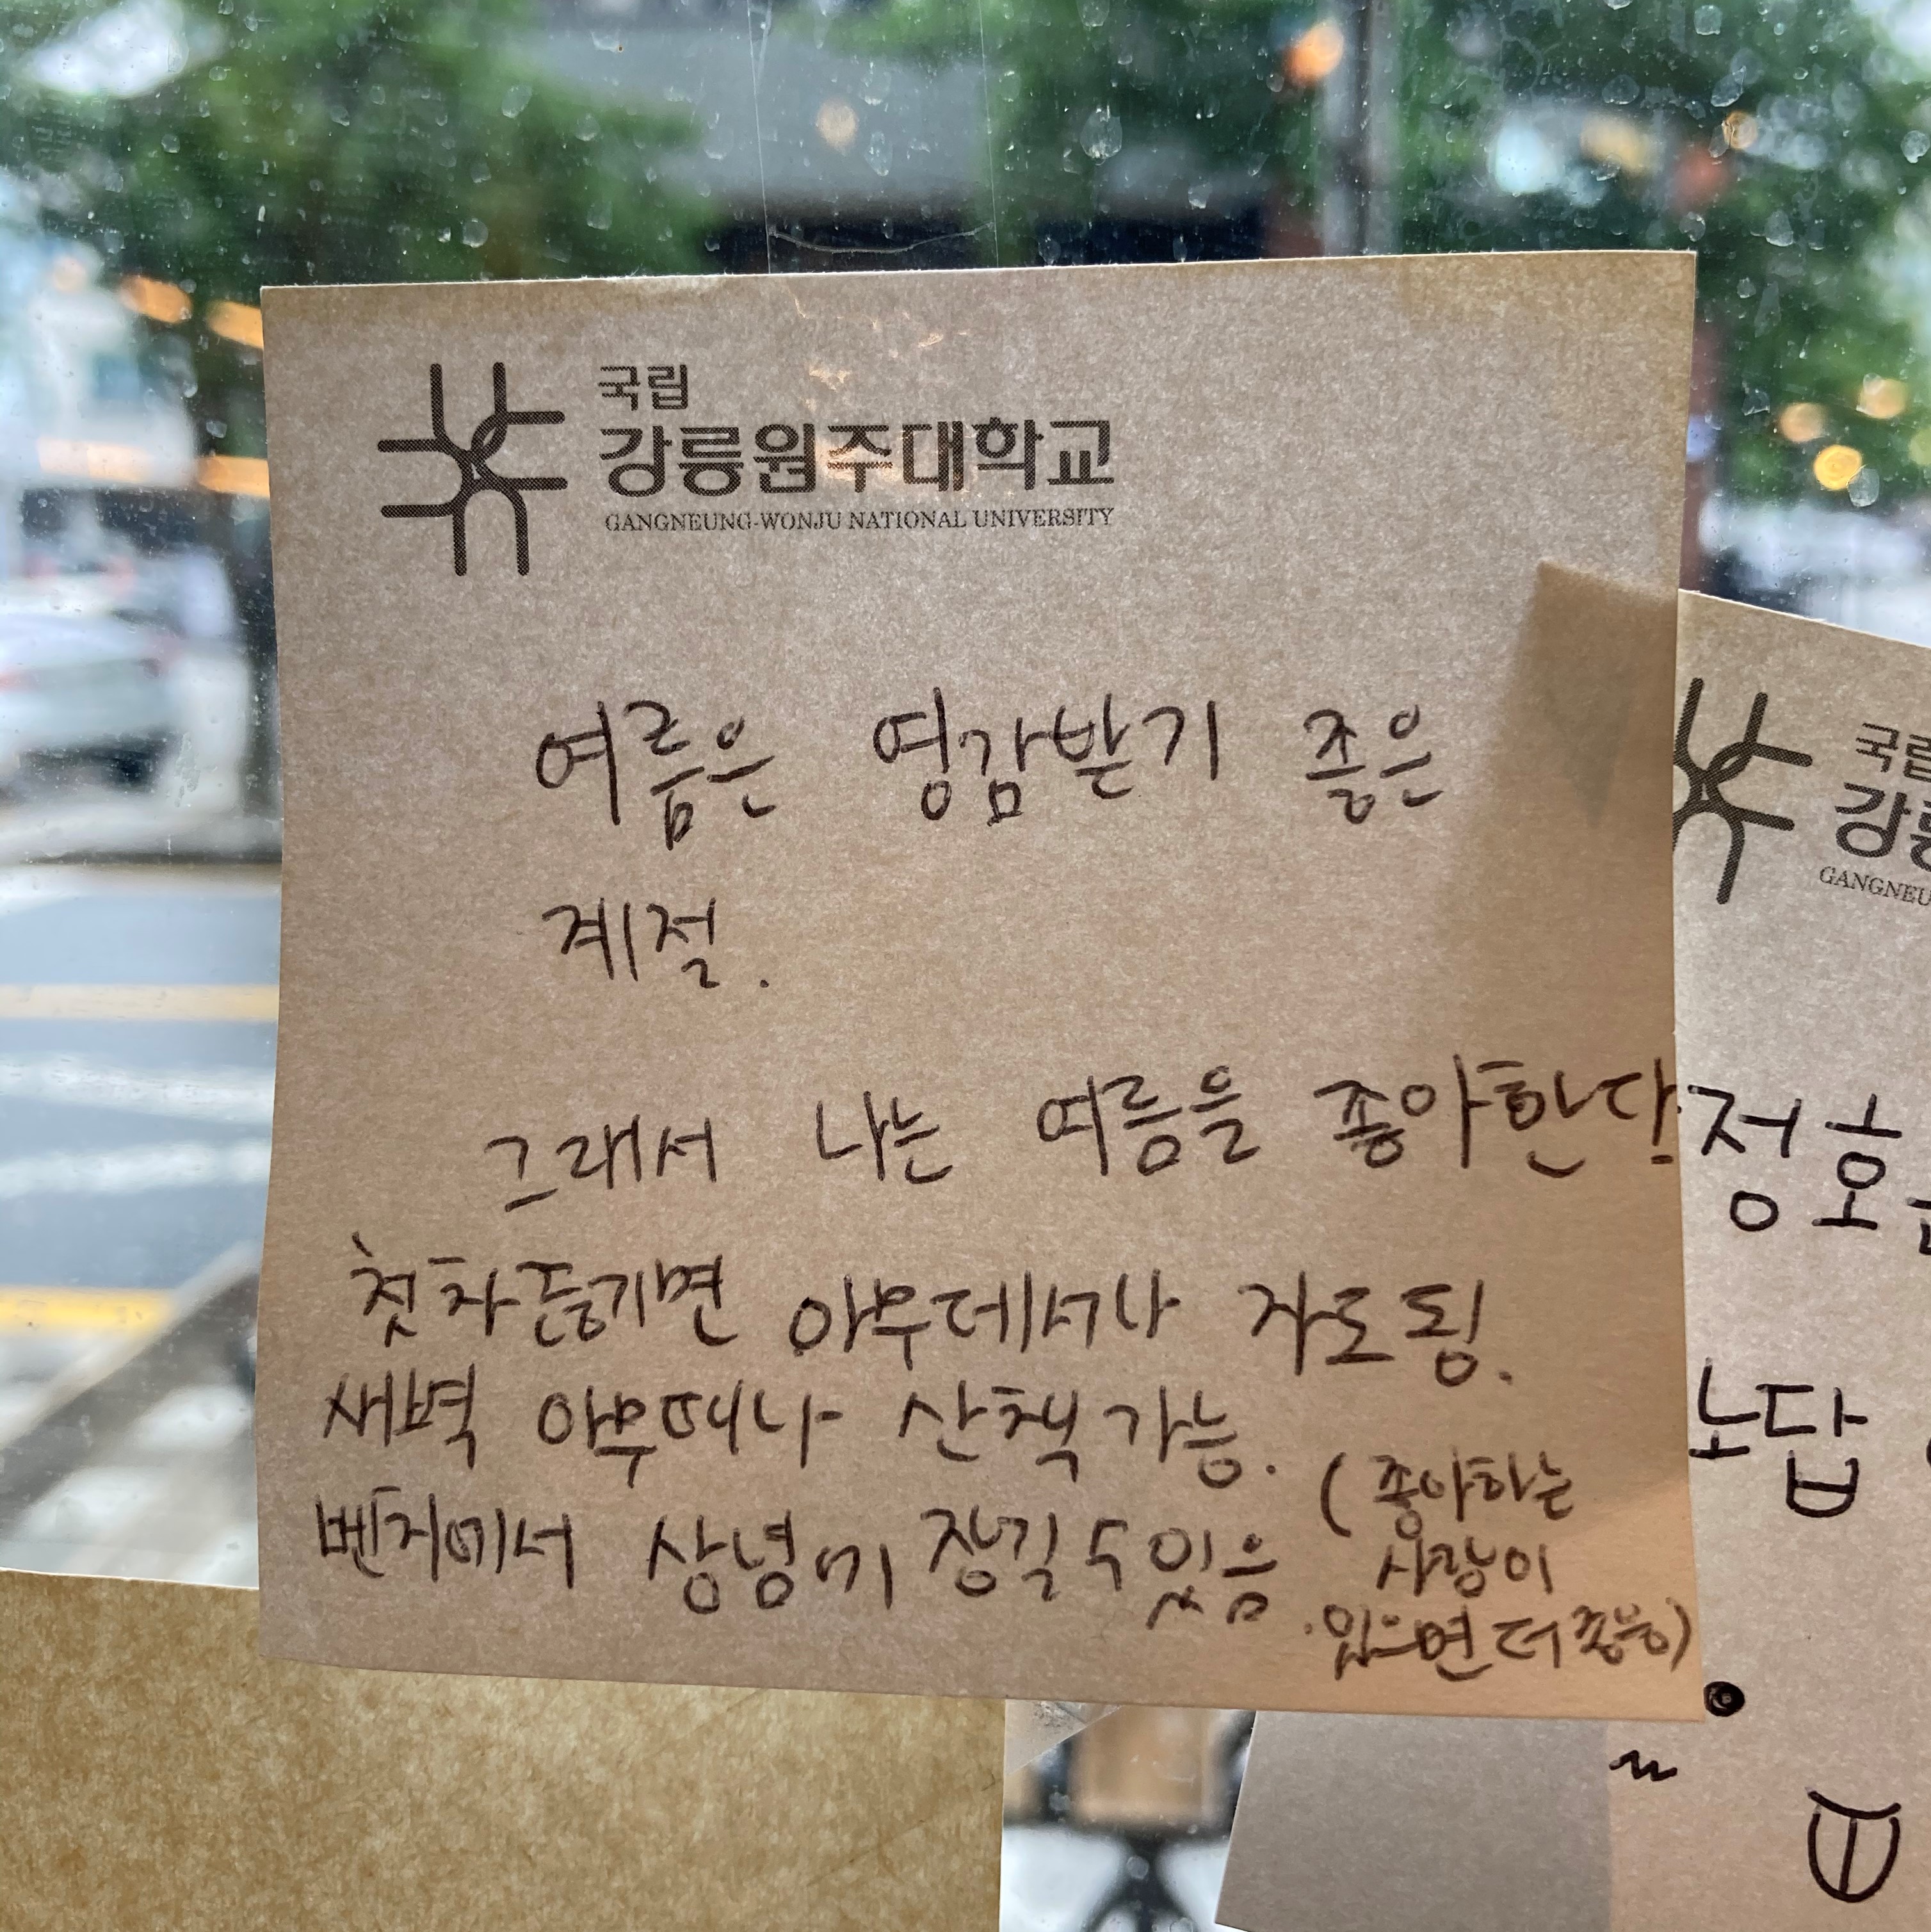 국립
강릉원주대학교
GANGNEUNG-WONJU NATIONAL UNIVERSITY
여름은 영감받기 좋은
계절.
그래서 나는 여름을 좋아한다.
첫차 아무데서나 자도됨.
새벽 아무때나 산책가능.
벤치에서 상념에 잠길 수 있음
(좋아하는
사람이
있으면 더 좋음)
국립
강릉
GANGNEU
정호
노답